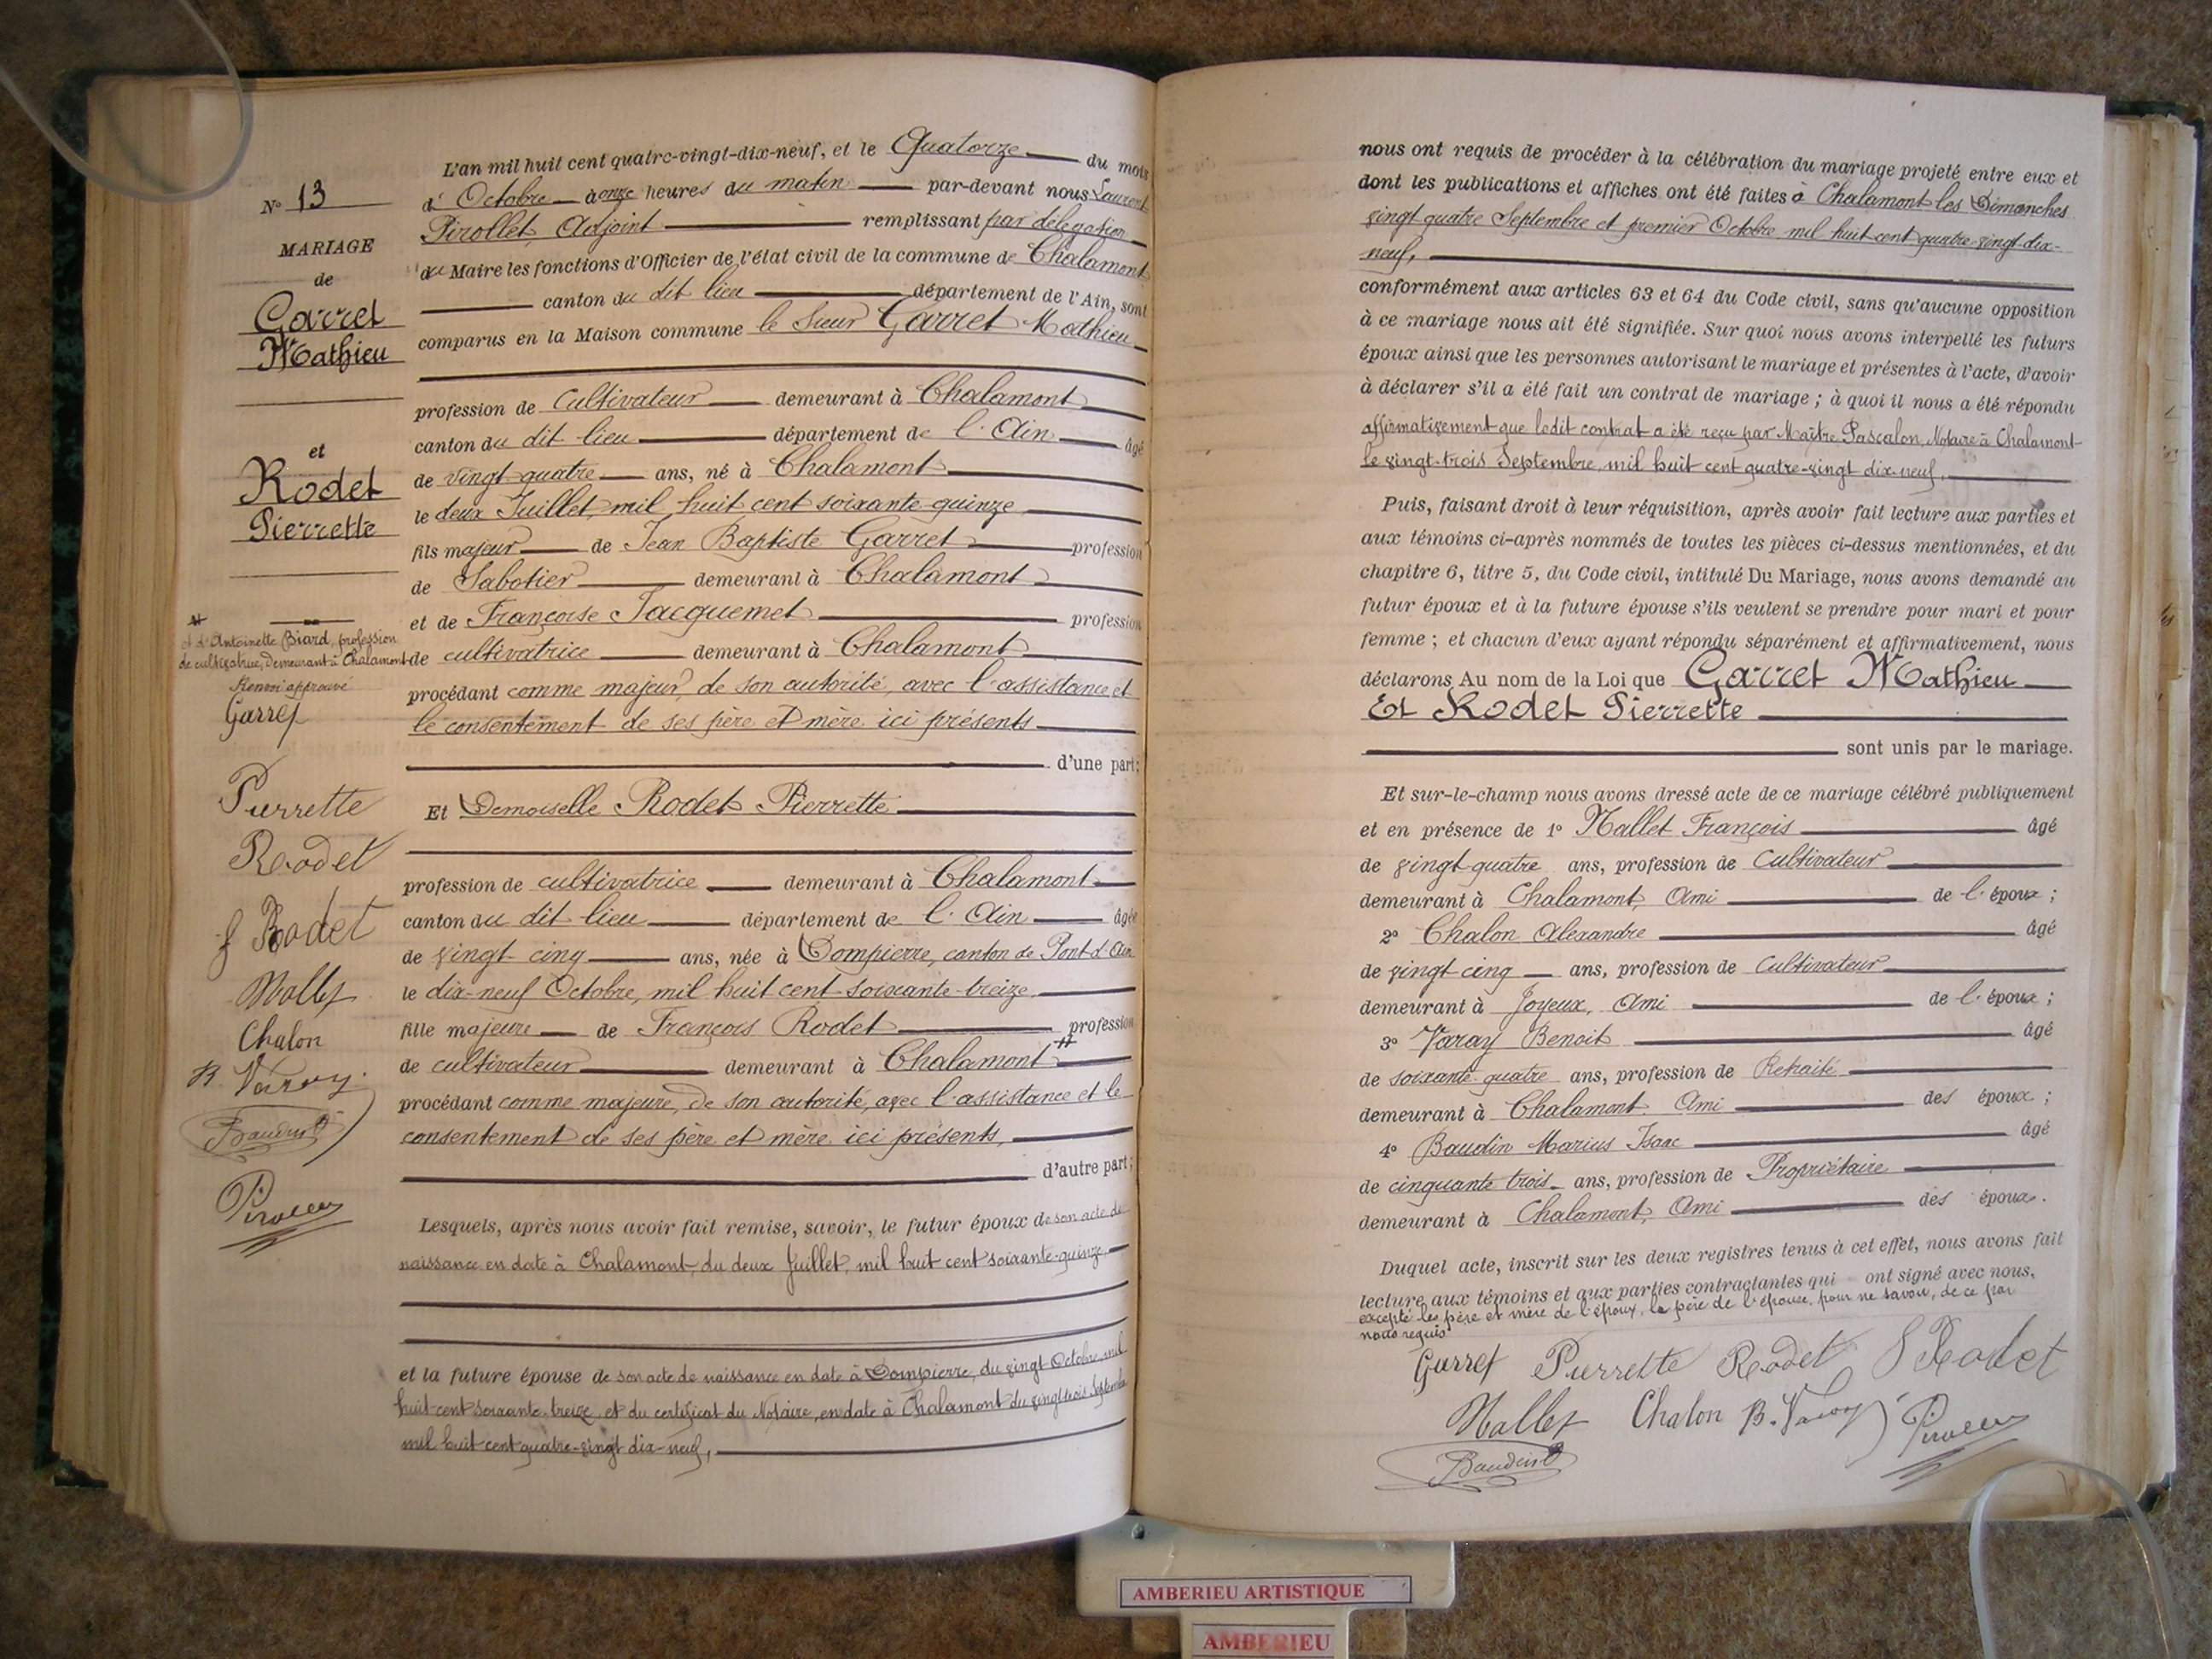 N° 13
MARIAGE
de
Garret
Mathieu
et
Rodet
Pierrette
et d'Antoinette Biard, profession
de cultivatrice, demeurant à Chalamont
Renvoi approuvé
Garret
Pierrette
Rodet
f Rodet
Mallet
Chalon
B. Varay
Baudin
Pirollet
L'an mil huit cent quatre-vingt-dix-neuf, et le Quatorze du mois
d' Octobre à onze heures du matin par-devant nous Laurent
Pirollet, Adjoint remplissant par délégation
du Maire les fonctions d'Officier de l'état civil de la commune de Chalamont
canton du dit lieu département de l'Ain, sont
comparus en la Maison commune le Sieur Garret Mathieu
profession de Cultivateur demeurant à Chalamont
canton du dit lieu département de l'Ain âgé
de vingt quatre ans, né à Chalamont
le deux Juillet, mil huit cent soixante quinze
fils majeur de Jean Baptiste Garret profession
de Sabotier demeurant à Chalamont
et de Françoise Jacquemet profession
de cultivatrice demeurant à Chalamont
procédant comme majeur, de son autorité, avec l'assistance et
le consentement de ses père et mère ici présents
d'une part;
Et Demoiselle Rodet Pierrette
profession de cultivatrice demeurant à Chalamont
canton du dit lieu département de l'Ain âgée
de vingt-cinq ans, née à Dompierre, canton de Pont d'Ain
le dix-neuf Octobre, mil huit cent soixante-treize,
fille majeure de François Rodet profession
de cultivateur demeurant à Chalamont #
procédant comme majeure, de son autorité, avec l'assistance et le
consentement de ses père et mère ici présents,
d'autre part;
Lesquels, après nous avoir fait remise, savoir, le futur époux de son acte de
naissance en date à Chalamont, du deux Juillet, mil huit cent soixante-quinze
et la future épouse de son acte de naissance en date à Dompierre, du vingt Octobre mil
huit cent soixante treize, et du certificat du Notaire, en date à Chalamont du vingt trois Septembre
mil huit cent quatre-vingt dix-neuf,
nous ont requis de procéder à la célébration du mariage projeté entre eux et
dont les publications et affiches ont été faites à Chalamont les Dimanches
vingt quatre Septembre et premier Octobre mil huit cent quatre-vingt dix-
neuf,
conformément aux articles 63 et 64 du Code civil, sans qu'aucune opposition
à ce mariage nous ait été signifiée. Sur quoi nous avons interpellé les futurs
époux ainsi que les personnes autorisant le mariage et présentes à l'acte, d'avoir
à déclarer s'il a été fait un contrat de mariage; à quoi il nous a été répondu
affirmativement que ledit contrat a été reçu par Maître Pascalon, Notaire à Chalamont
le vingt-trois Septembre mil huit cent quatre-vingt dix-neuf.
Puis, faisant droit à leur réquisition, après avoir fait lecture aux parties et
aux témoins ci-après nommés de toutes les pièces ci-dessus mentionnées, et du
chapitre 6, titre 5, du Code civil, intitulé Du Mariage, nous avons demandé au
futur époux et à la future épouse s'ils veulent se prendre pour mari et pour
femme; et chacun d'eux ayant répondu séparément et affirmativement, nous
déclarons Au nom de la Loi que Garret Mathieu
Et Rodet Pierrette
sont unis par le mariage.
Et sur-le-champ nous avons dressé acte de ce mariage célébré publiquement
et en présence de 1° Mallet François âgé
de vingt quatre ans, profession de Cultivateur
demeurant à Chalamont, Ami de l'époux;
2° Chalon Alexandre âgé
de vingt cinq ans, profession de Cultivateur
demeurant à Joyeux, Ami de l'époux;
3° Varay Benoit âgé
de soixante-quatre ans, profession de Retraité
demeurant à Chalamont Ami des époux;
4° Baudin Marius Isaac âgé
de cinquante trois ans, profession de Propriétaire
demeurant à Chalamont, Ami des époux.
Duquel acte, inscrit sur les deux registres tenus à cet effet, nous avons fait
lecture aux témoins et aux parties contractantes qui ont signé avec nous,
excepté les père et mère de l'époux, le père de l'épouse, pour ne savoir, de ce par
nous requis
Garret Pierrette Rodet f Rodet
Mallet Chalon B. Varay Pirollet
Baudin
AMBERIEU ARTISTIQUE
AMBERIEU